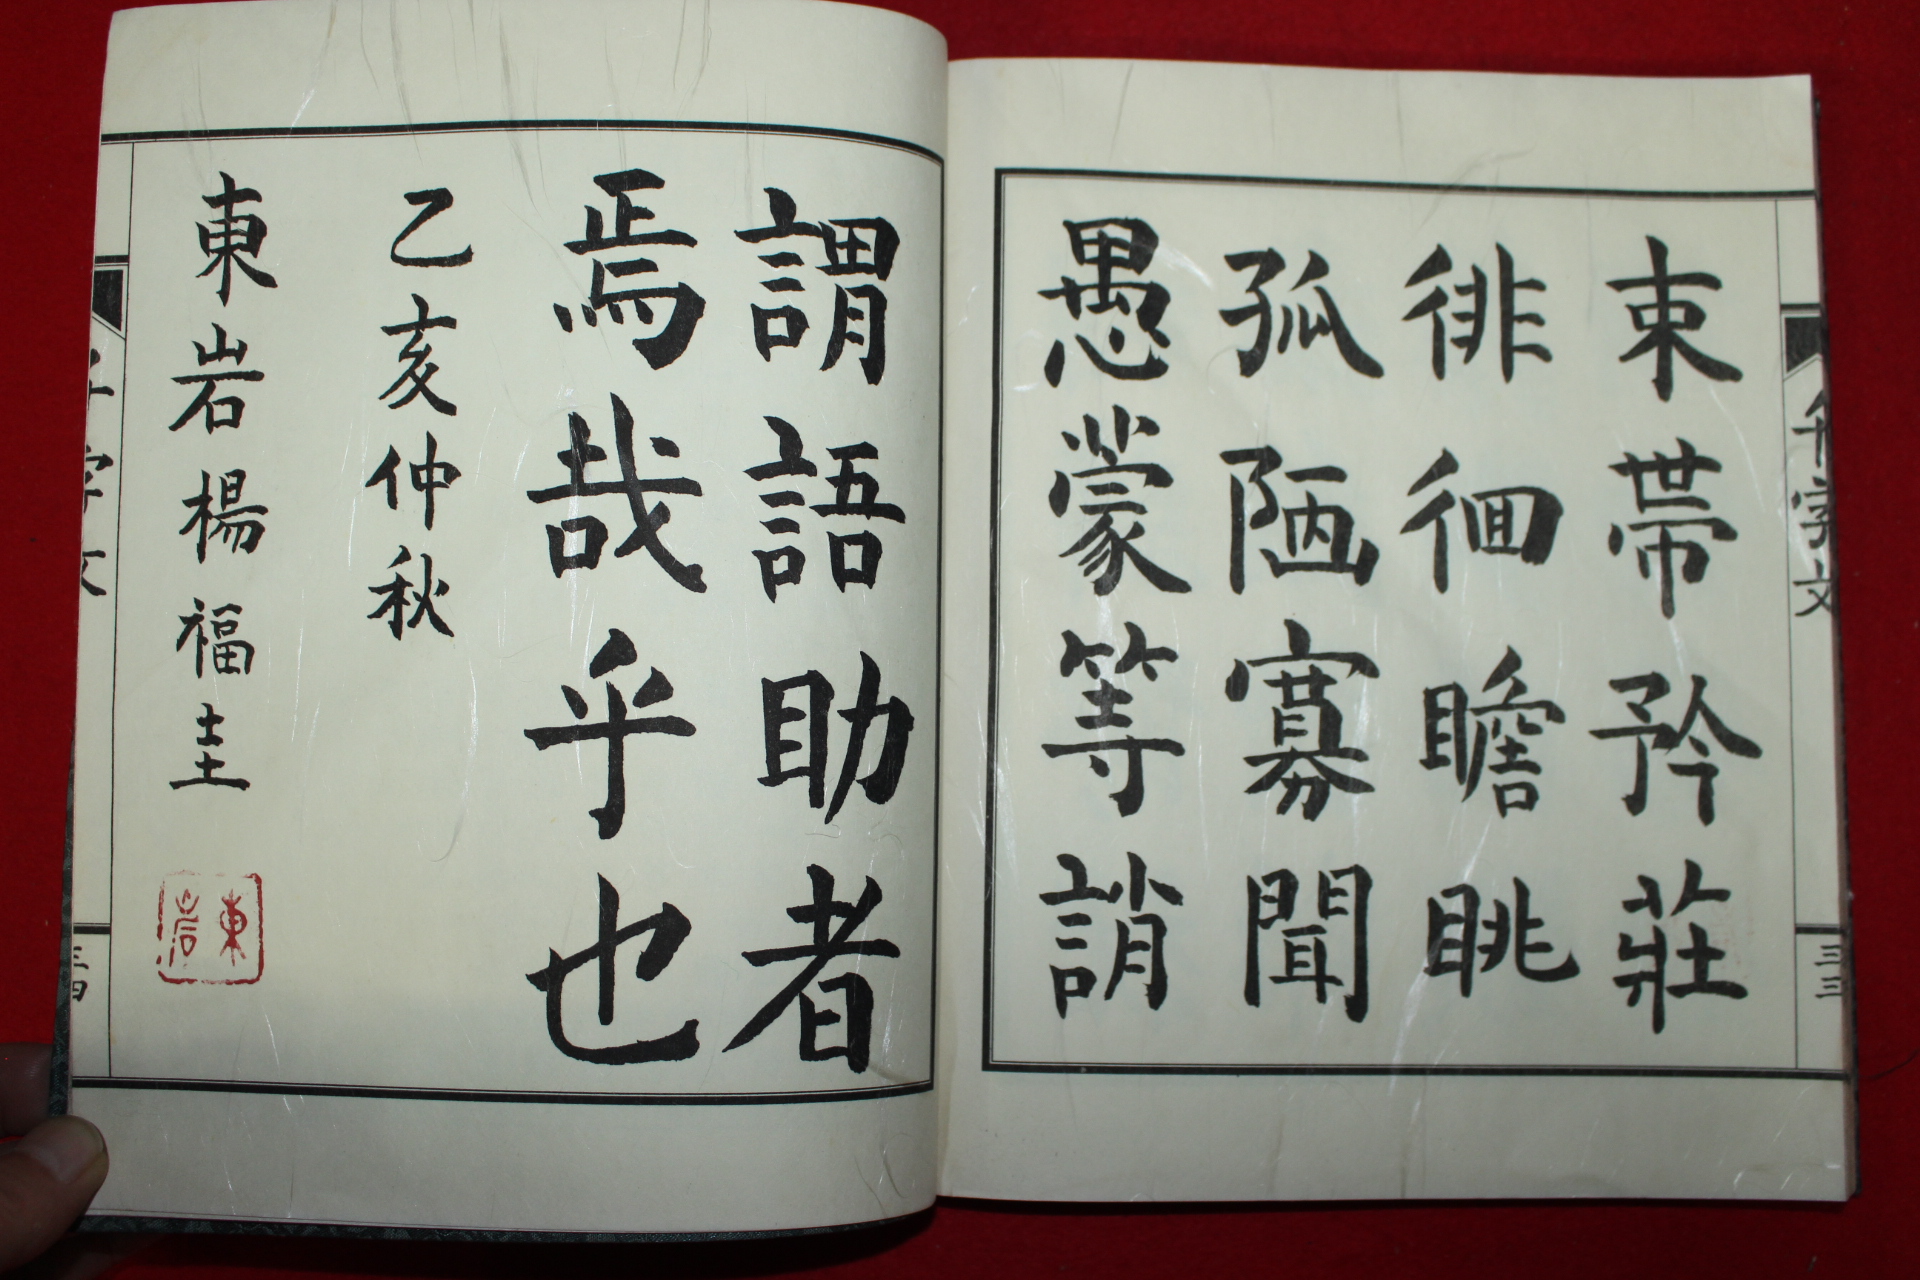 千字文
三三
束帶矜莊
徘徊瞻眺
孤陋寡聞
愚蒙等誚
謂語助者
焉哉乎也
乙亥仲秋
東岩楊福圭
東岩
千字文
三四